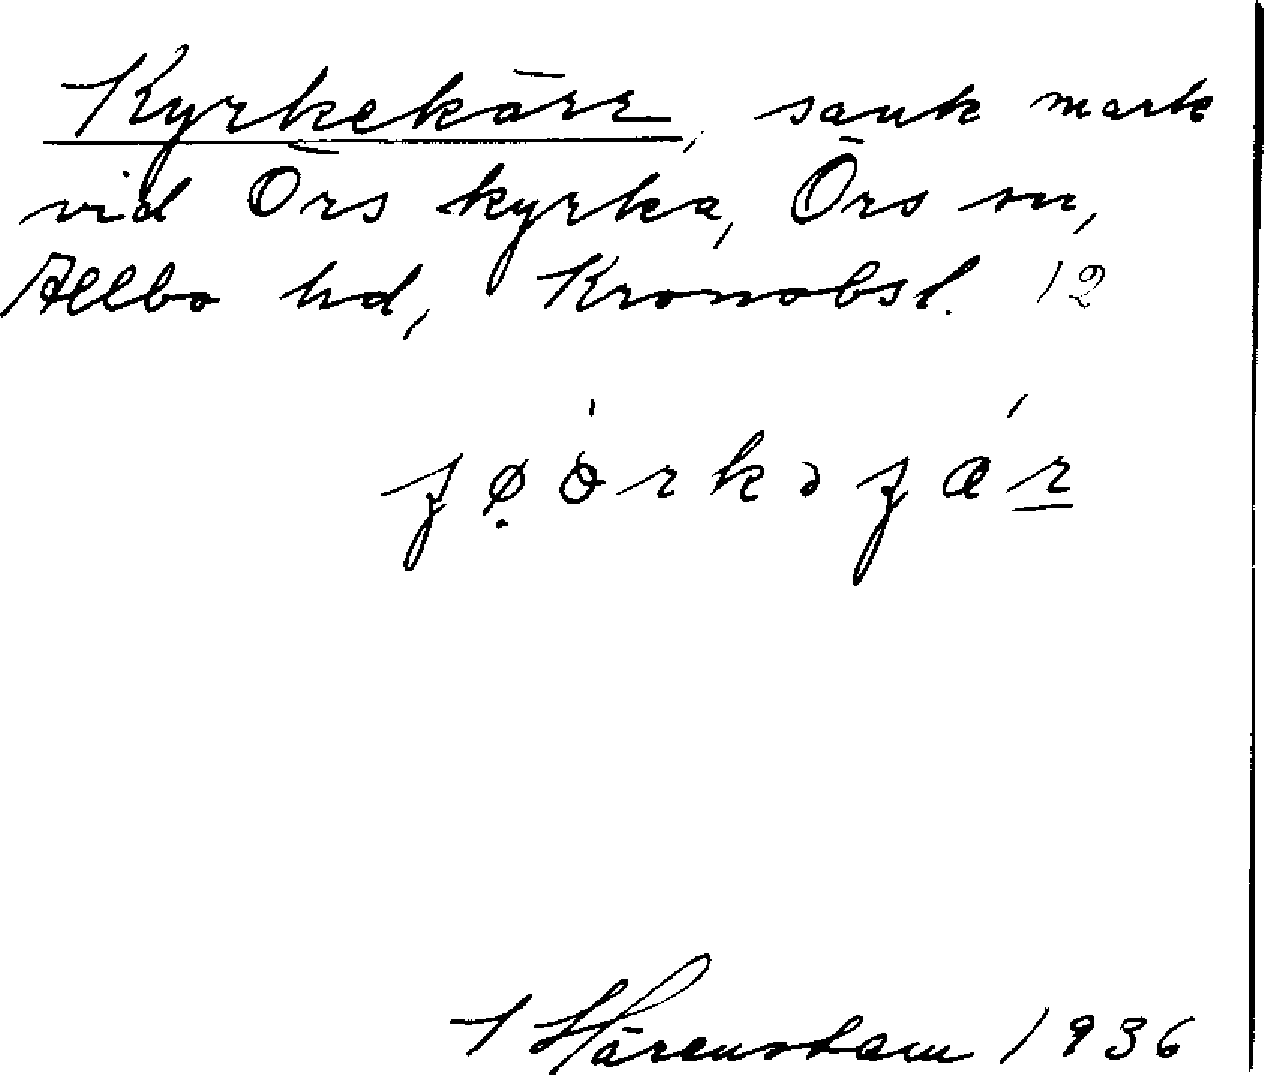 Kyrkekärr, sank mark
vid Örs kyrka, Örs sn,
Allbo hd, Kronobsl. 12
1936